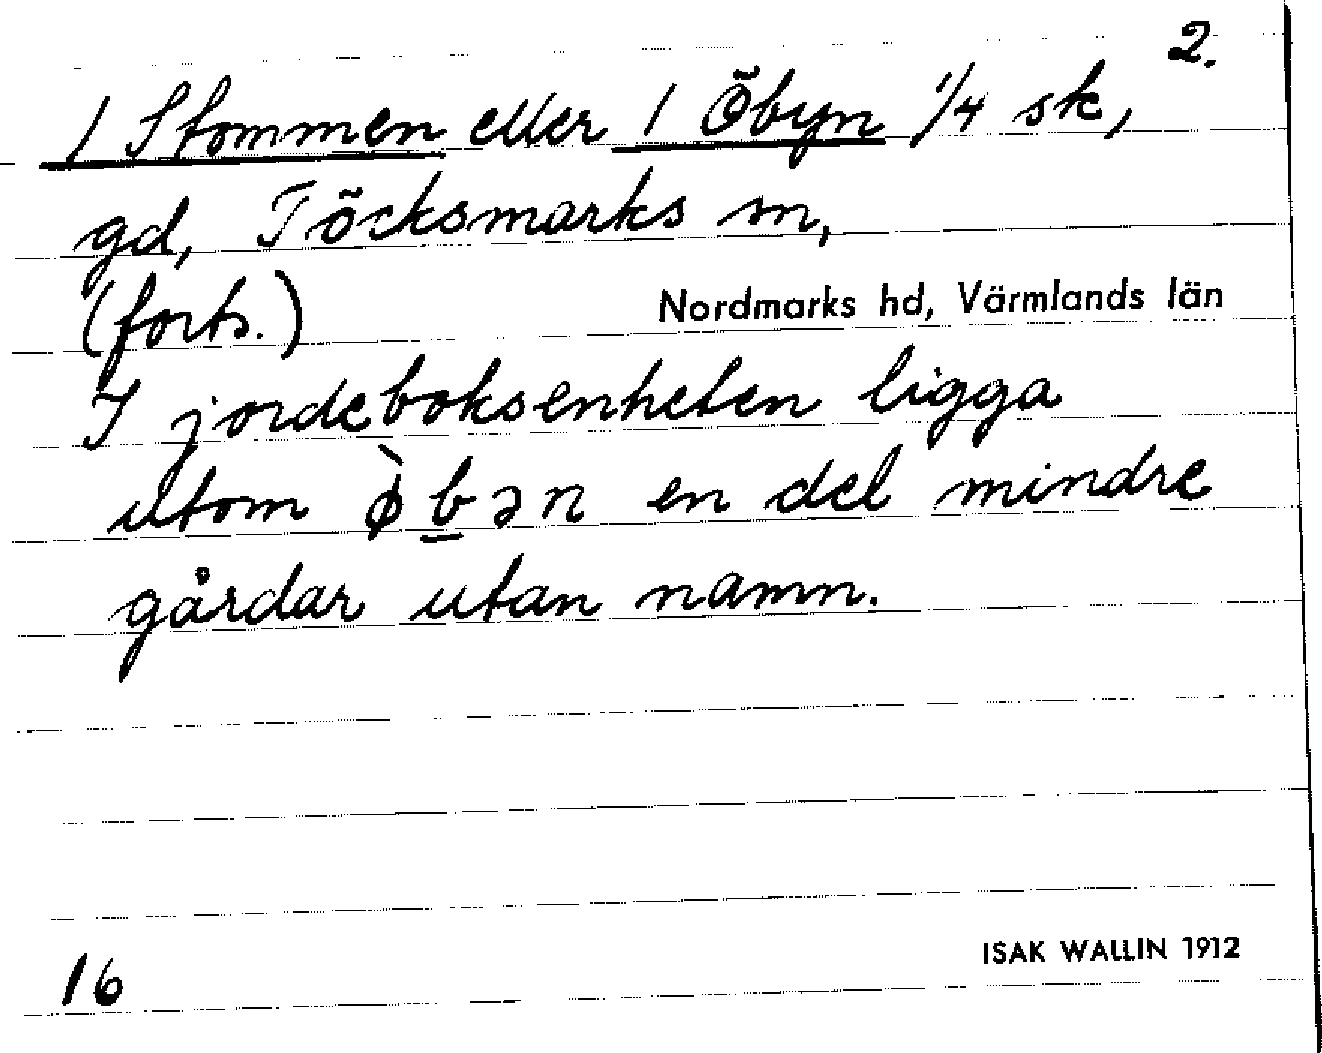 2.
1 Stommen eller 1 Öbyn 1/4 sk,
gd, Töcksmarks sn,
(forts.)
Nordmarks hd, Värmlands län
I jordeboksenheten ligga
utom ø̀bən en del mindre
gårdar utan namn.
16
ISAK WALLIN 1912